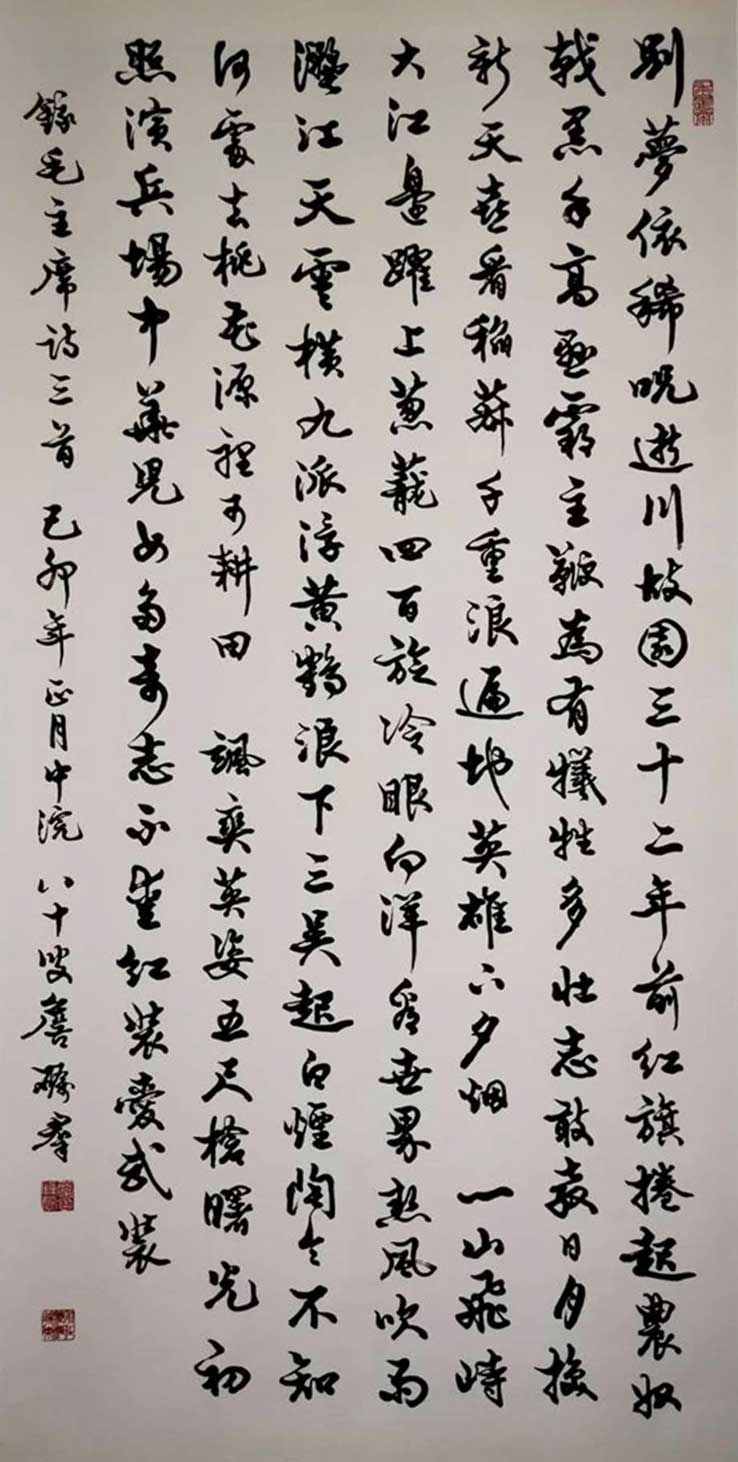 別夢依稀咒逝川故園三十二年前紅旗捲起農奴
戟黑手高懸霸主鞭為有犧牲多壯志敢教日月換
新天喜看稻菽千重浪遍地英雄下夕烟 一山飛峙
大江邊躍上蔥蘢四百旋冷眼向洋看世界熱風吹雨
灑江天雲橫九派浮黃鶴浪下三吳起白煙陶令不知
何處去桃花源裡可耕田 颯爽英姿五尺槍曙光初
照演兵場中華兒女多奇志不愛紅裝愛武裝
錄毛主席詩三首 己卯年正月中浣 八十叟詹勵群